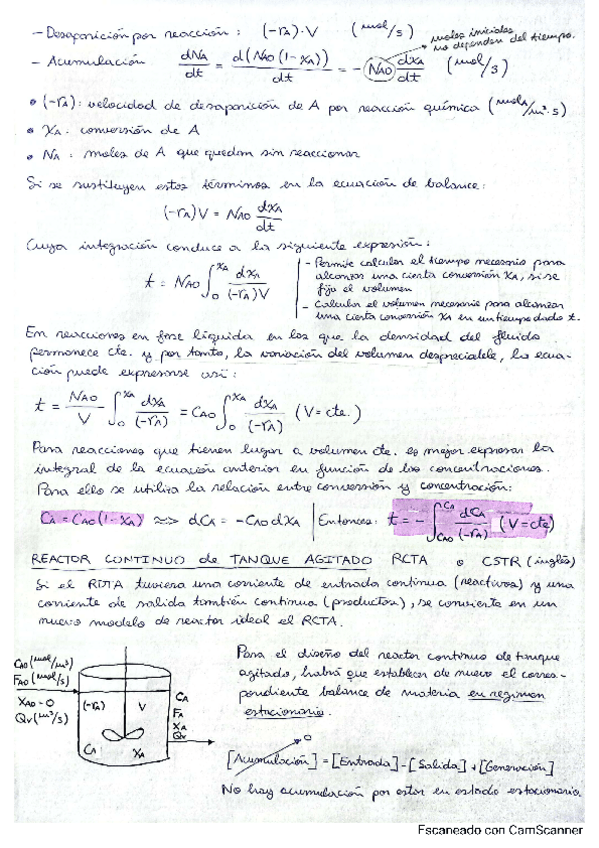 - Desaparición por reacción : (-rA)·V (mol/s)
moles iniciales
no dependen del tiempo.
- Acumulación dNA/dt = d(NAO(1-XA))/dt = - NAO dXA/dt (mol/s)
• (-rA): velocidad de desaparición de A por reacción química (molA/m³·s)
• XA: conversión de A
• NA : moles de A que quedan sin reaccionar
Si se sustituyen estos términos en la ecuación de balance:
(-rA)V = NAO dXA/dt
Cuya integración conduce a la siguiente expresión:
t = NAO ∫₀^XA dXA/(-rA)V
- Permite calcular el tiempo necesario para
alcanzar una cierta conversión XA, si se
fija el volumen
- Calcular el volumen necesario para alcanzar
una cierta conversión XA en un tiempo dado t.
En reacciones en fase líquida en las que la densidad del fluido
permanece cte. y por tanto, la variación del volumen despreciable, la ecua-
ción puede expresarse así:
t = NAO/V ∫₀^XA dXA/(-rA) = CAO ∫₀^XA dXA/(-rA) (V=cte.)
Para reacciones que tienen lugar a volumen cte. es mejor expresar la
integral de la ecuación anterior en función de las concentraciones.
Para ello se utiliza la relación entre conversión y concentración:
CA = CAO(1-XA) ≈> dCA = -CAO dXA | Entonces: t = - ∫CAO^CA dCA/(-rA) (V=cte)
REACTOR CONTINUO de TANQUE AGITADO RCTA o CSTR (inglés)
Si el RDTA tuviera una corriente de entrada continua (reactivos) y una
corriente de salida también continua (productos), se convierte en un
nuevo modelo de reactor ideal el RCTA.
Para el diseño del reactor continuo de tanque
agitado, habrá que establecer de nuevo el corres-
pondiente balance de materia en régimen
estacionario.
CAO (mol/m³)
FAO (mol/s)
XAO = 0
Qv (m³/s)
(-rA) V
CA XA
CA
FA
XA
Qv
0
[Acumulación] = [Entrada] - [Salida] + [Generación]
No hay acumulación por estar en estado estacionario.
Escaneado con CamScanner